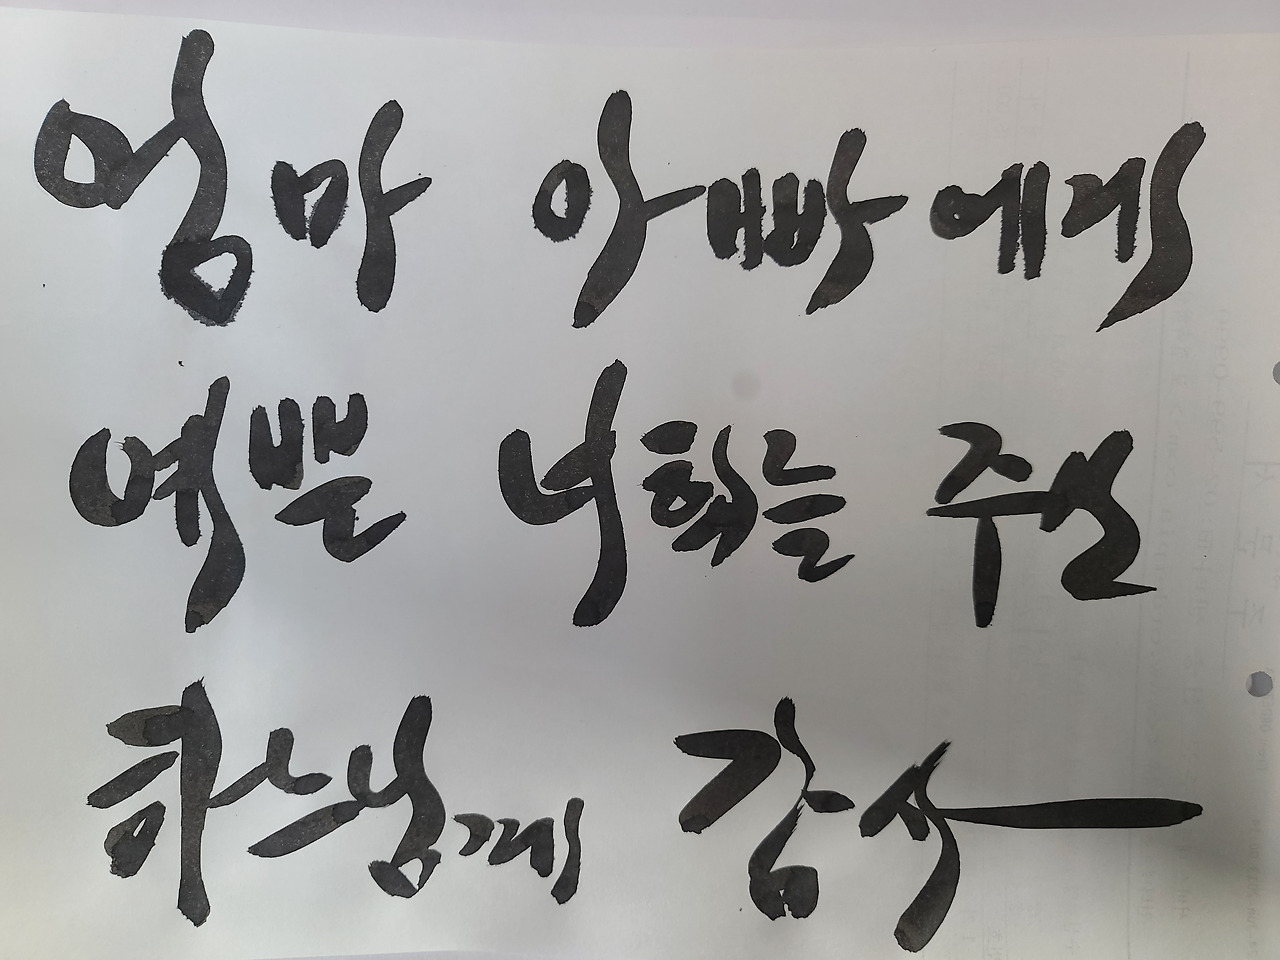 엄마 아빠에게
예쁜 너희를 주신
하느님께 감사